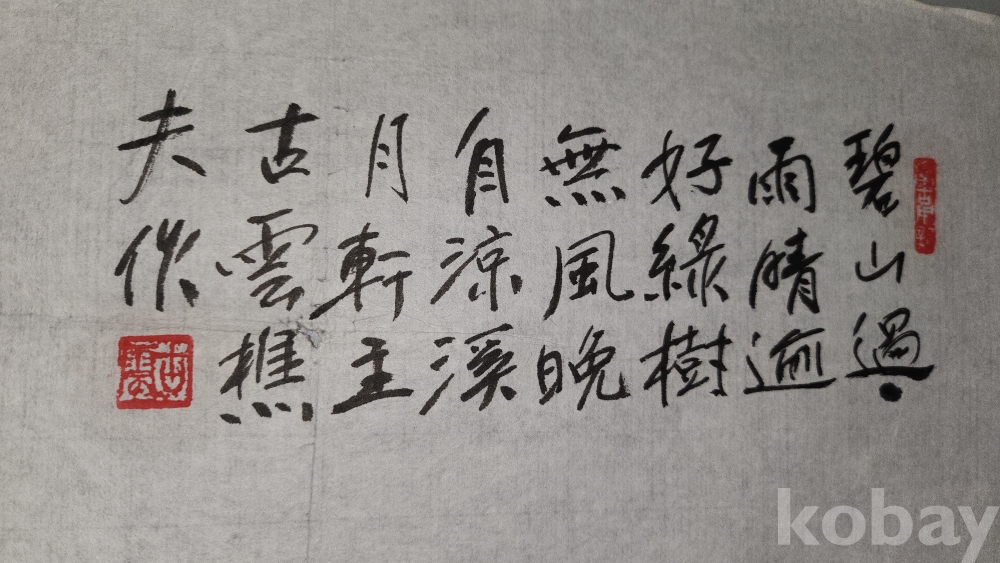 碧山過
雨晴逾
好綠樹
無風晚
自涼溪
月軒主
古雲樵
夫作
古雲
kobay